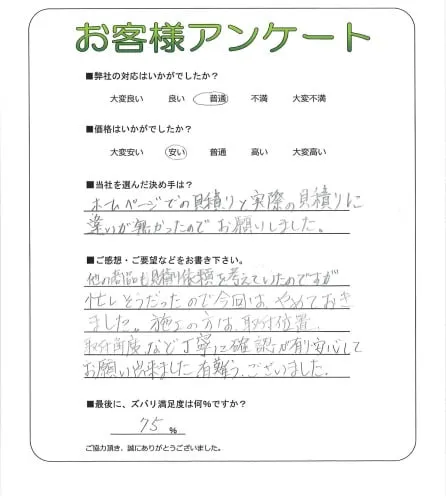 お客様アンケート
■弊社の対応はいかがでしたか?
大変良い 良い 普通 不満 大変不満
■価格はいかがでしたか?
大変安い 安い 普通 高い 大変高い
■当社を選んだ決め手は?
ホームページでの見積りと実際の見積りに
違いが無かったのでお願いしました。
■ご感想・ご要望などをお書き下さい。
他の商品も見積り依頼を考えていたのですが
忙しそうだったので今回はやめておき
ました。施工の方は、取付位置、
取付角度、など丁寧に確認が有り安心して
お願い出来ました。有難うございました。
■最後に、ズバリ満足度は何%ですか?
75 %
ご協力頂き、誠にありがとうございました。